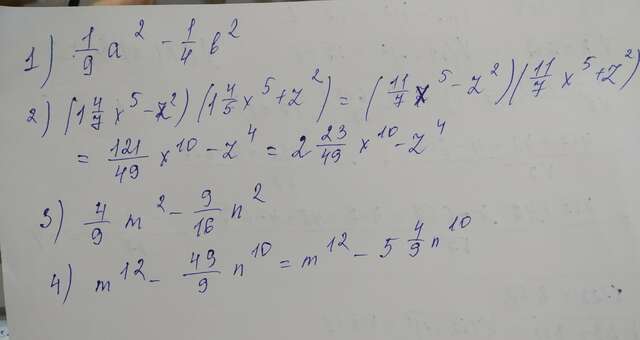 1) 1/9 a² - 1/4 b²
2) (1 4/7 x⁵ - z²)(1 4/5 x⁵ + z²) = (11/7 x⁵ - z²)(11/7 x⁵ + z²)
= 121/49 x¹⁰ - z⁴ = 2 23/49 x¹⁰ - z⁴
3) 4/9 m² - 9/16 n²
4) m¹² - 49/9 n¹⁰ = m¹² - 5 4/9 n¹⁰